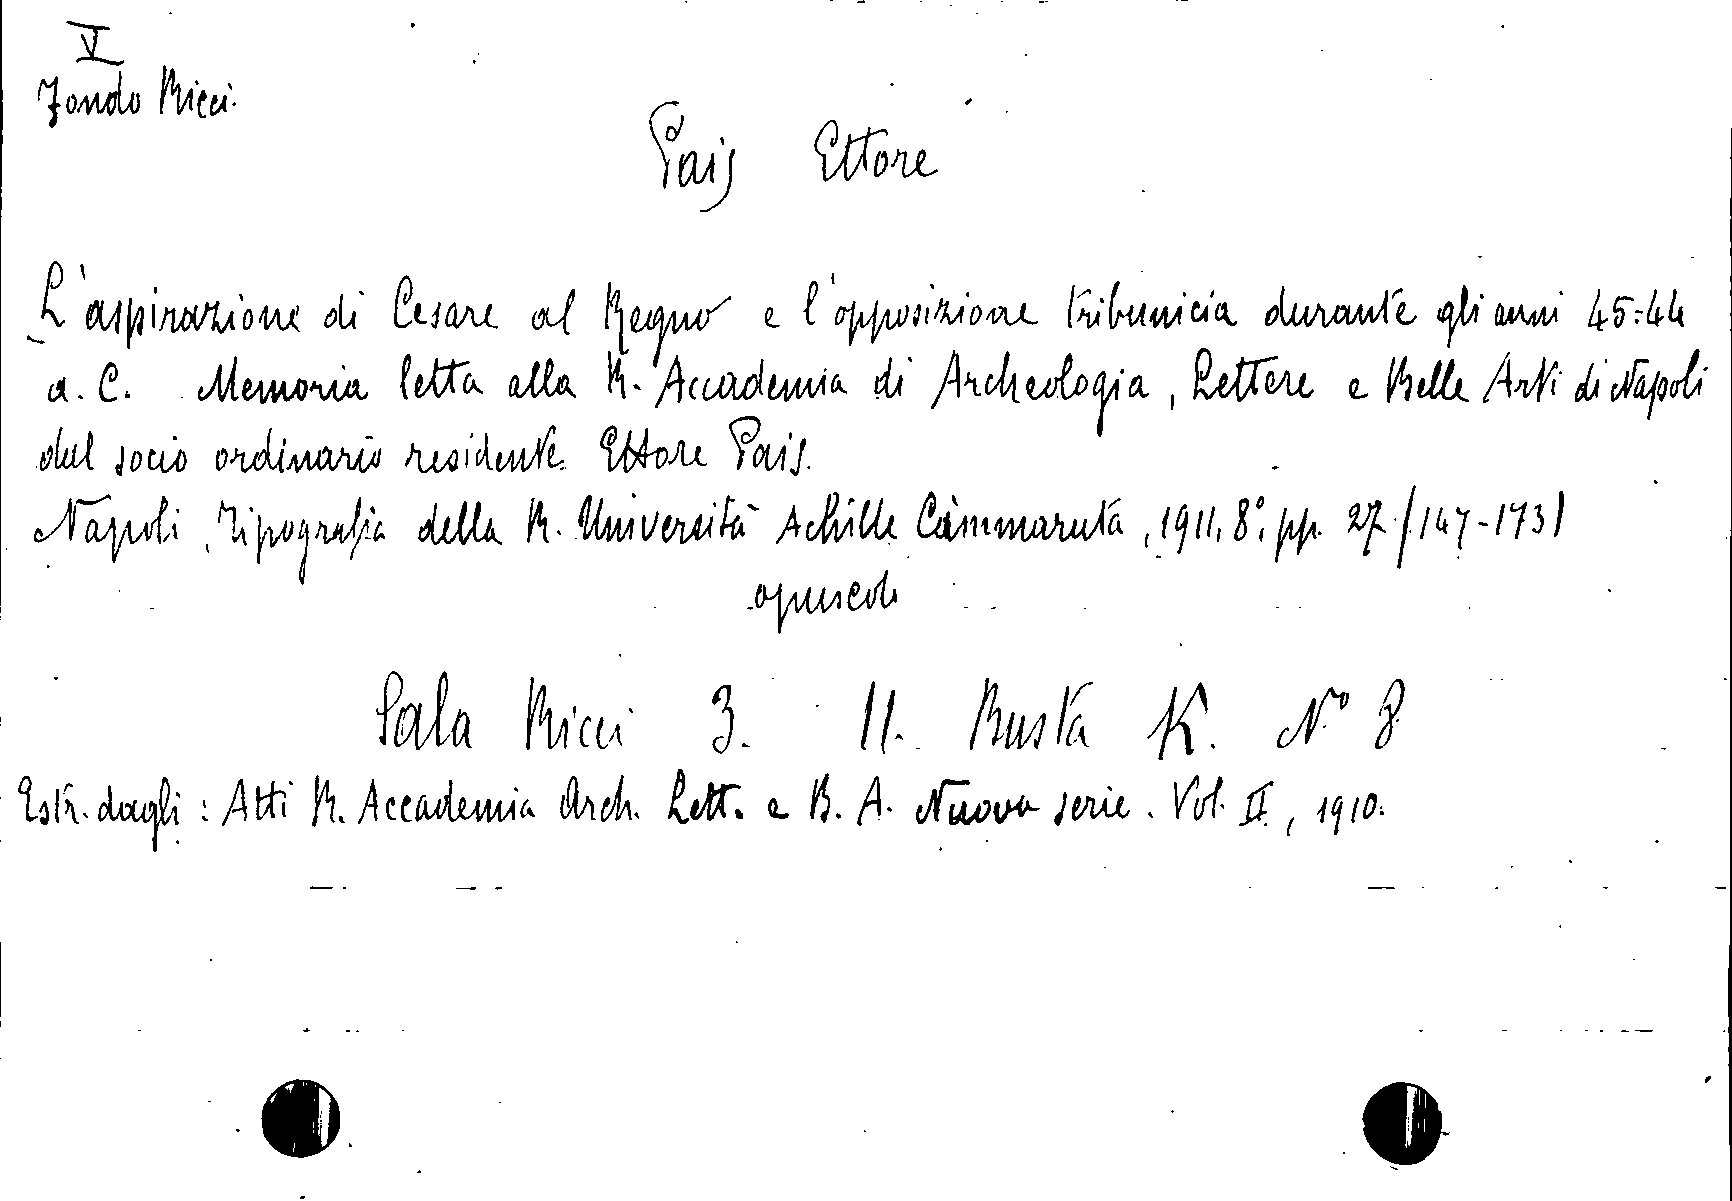 V
Fondo Ricci.
Pais Ettore
L'aspirazione di Cesare al Regno e l'opposizione tribunicia durante gli anni 45-44
a. C. Memoria letta alla R. Accademia di Archeologia, Lettere e Belle Arti di Napoli
dal socio ordinario residente Ettore Pais.
Napoli, Tipografia della R. Università Achille Cimmaruta, 1911, 8°, pp. 27 (147-173)
opuscoli
Sala Ricci 3. 11. Busta K. N° 8
Estr. dagli: Atti R. Accademia Arch. Lett. e B. A. Nuova serie. Vol. II, 1910.